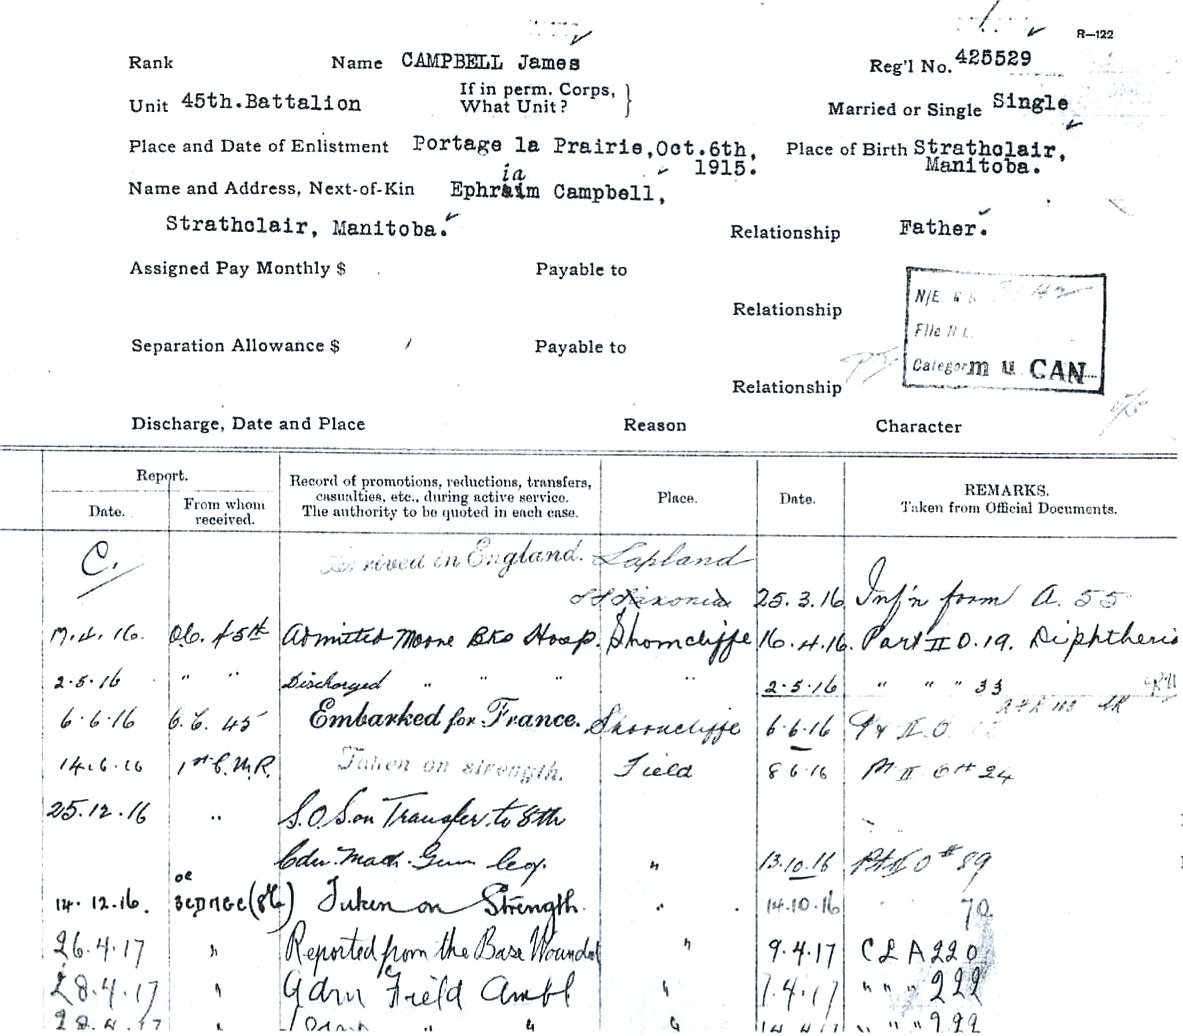 R-122
Rank Name CAMPBELL James Reg'l No. 425529
Unit 45th.Battalion If in perm. Corps, What Unit? } Married or Single Single
Place and Date of Enlistment Portage la Prairie,Oct.6th, 1915. Place of Birth Strathclair, Manitoba.
ia
Name and Address, Next-of-Kin Ephraim Campbell,
Strathclair, Manitoba. Relationship Father.
Assigned Pay Monthly $ Payable to
Relationship
N/E
File R L.
Separation Allowance $ Payable to
Category m u CAN
Relationship
Discharge, Date and Place Reason Character
Report. Record of promotions, reductions, transfers, casualties, etc., during active service. The authority to be quoted in each case. Place. Date. REMARKS. Taken from Official Documents.
Date. From whom received.
C. Arrived in England. Lapland
SS Saxonia 25.3.16 Inf'n form A. 55
17.4.16. O.C. 45th Admitted Moore Bks Hosp. Shorncliffe 16.4.16. Part II O.19. Diphtheria
2.5.16 " " Discharged " " " " 2.5.16 " " " 33
6.6.16 O.C. 45 Embarked for France. Shorncliffe 6.6.16 II.O.
14.6.16 1st C.M.R. Taken on strength. Field 8 6.16 Pt II O# 24
25.12.16 " S.O.S. on Transfer to 8th
Cdn. Mach. Gun Coy. " 13.10.16 O # 89
14.12.16. Taken on Strength. " 14.10.16 " 70
26.4.17 " Reported from the Base Wounded " 9.4.17 C L A 220
28.4.17 " Adm Field Ambl " " " " 222
28.4.17 " " " " " " " 222